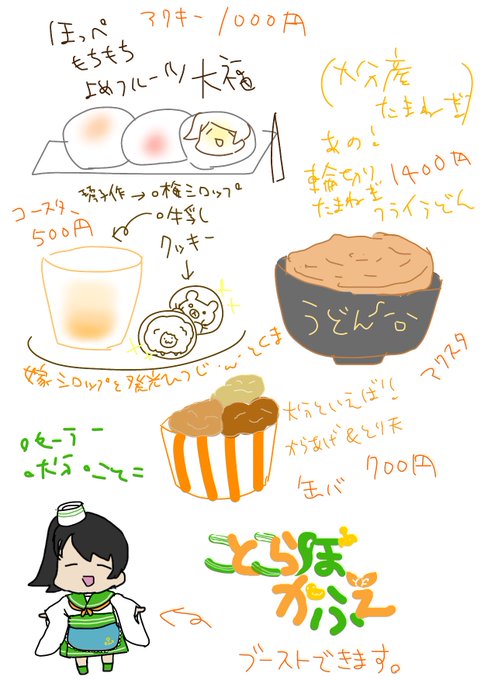 アクキー 1000円
ほっぺ
もちもち
よめフルーツ大福
(大分産
たまねぎ)
あの!
輪切り
たまねぎ
フライうどん
1400円
コースター
500円
璃子作→。梅シロップ
。牛乳
クッキー
うどん
嫁シロップと後光ひつじ
とくま
大分といえば!
からあげ&とり天
缶バ 700円
マクスタ
ことらぼ
かふぇ
ブーストできます。